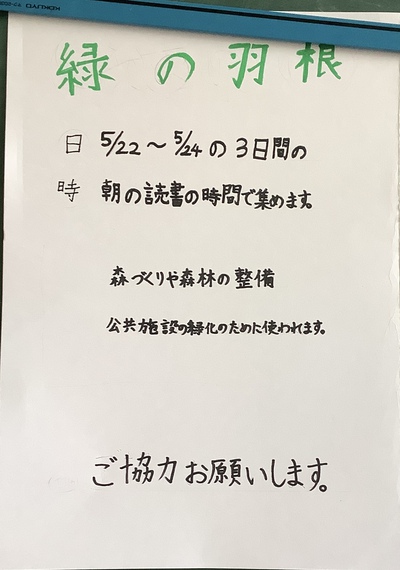 緑の羽根
日 5/22〜5/24の3日間の
時 朝の読書の時間で集めます。
森づくりや森林の整備
公共施設の緑化のために使われます。
ご協力お願いします。